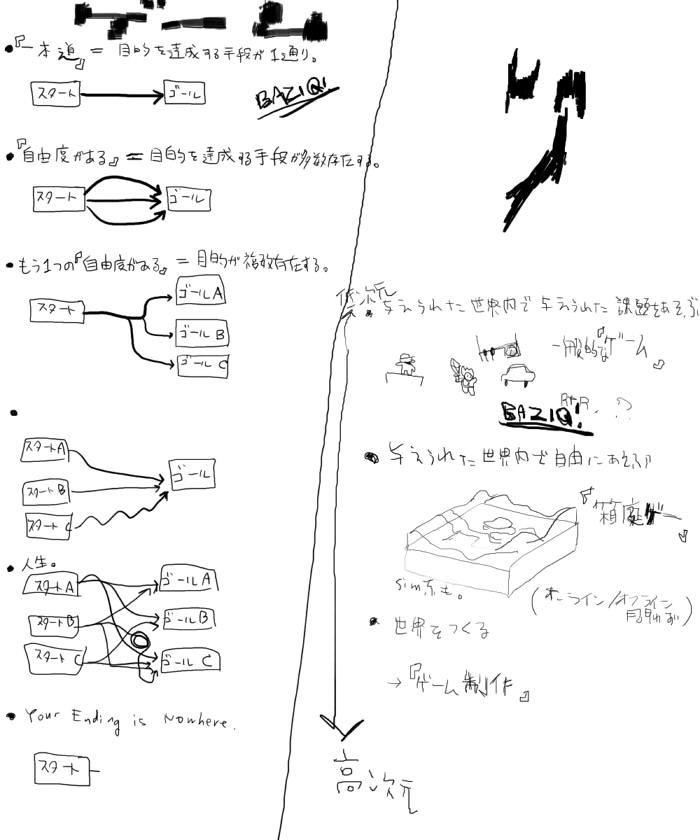 『一本道』 = 目的を達成する手段が1通り。
スタート ゴール
BAZIQ!
『自由度がある』 = 目的を達成する手段が多数存在する。
スタート ゴール
もう1つの『自由度がある』 = 目的が複数存在する。
スタート
ゴールA
ゴールB
ゴールC
スタートA
スタートB
スタートC
ゴール
人生。
スタートA
スタートB
スタートC
ゴールA
ゴールB
ゴールC
Your Ending is Nowhere.
スタート
低次元
与えられた世界内で与えられた課題をあそぶ
一般的な『ゲーム』
BAZIQ!
??
与えられた世界内で自由にあそぶ
『箱庭ゲー』
(オンライン/オフライン
問わず)
世界をつくる
→『ゲーム制作』
高次元